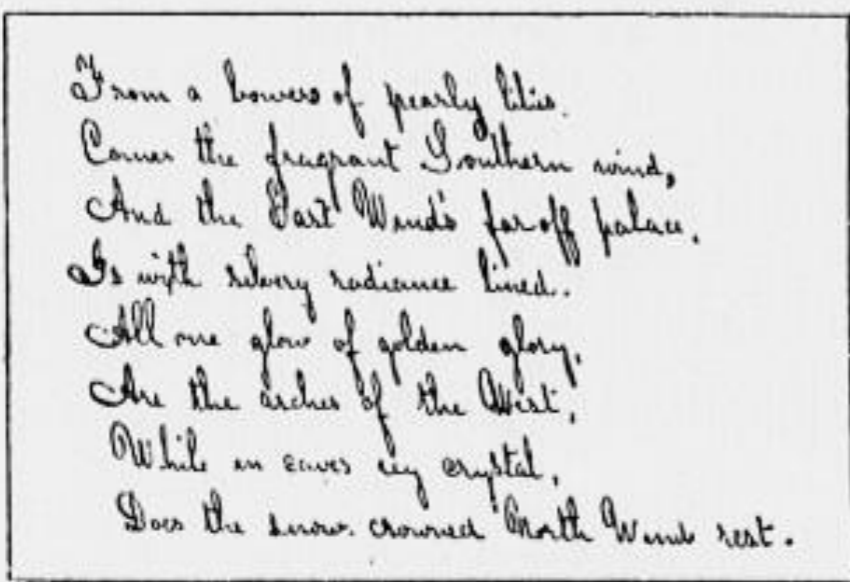 From a bowers of pearly lilies.
Comes the fragrant Southern wind,
And the East Wind's far off palace,
Is with silvery radiance lined.
All one glow of golden glory,
Are the arches of the West,
While in caves icy crystal,
Does the snow crowned North Wind rest.